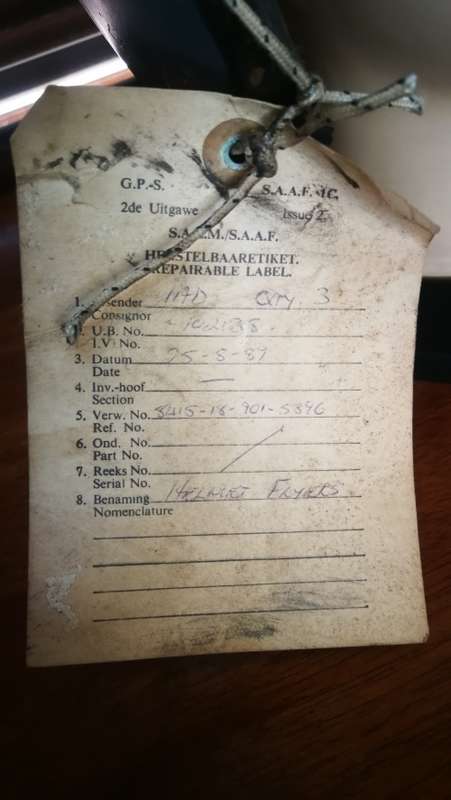 G.P.-S. S.A.A.F.
2de Uitgawe Issue 2
S.A.L.M./S.A.A.F.
HERSTELBAARETIKET.
REPAIRABLE LABEL.
1. Afsender Qty 3
Consignor
2. U.B. No.
I.V. No.
3. Datum 25-8-87
Date
4. Inv.-hoof —
Section
5. Verw. No. 8415-18-901-5396
Ref. No.
6. Ond. No.
Part No.
7. Reeks No.
Serial No.
8. Benaming HELMET FLYERS
Nomenclature